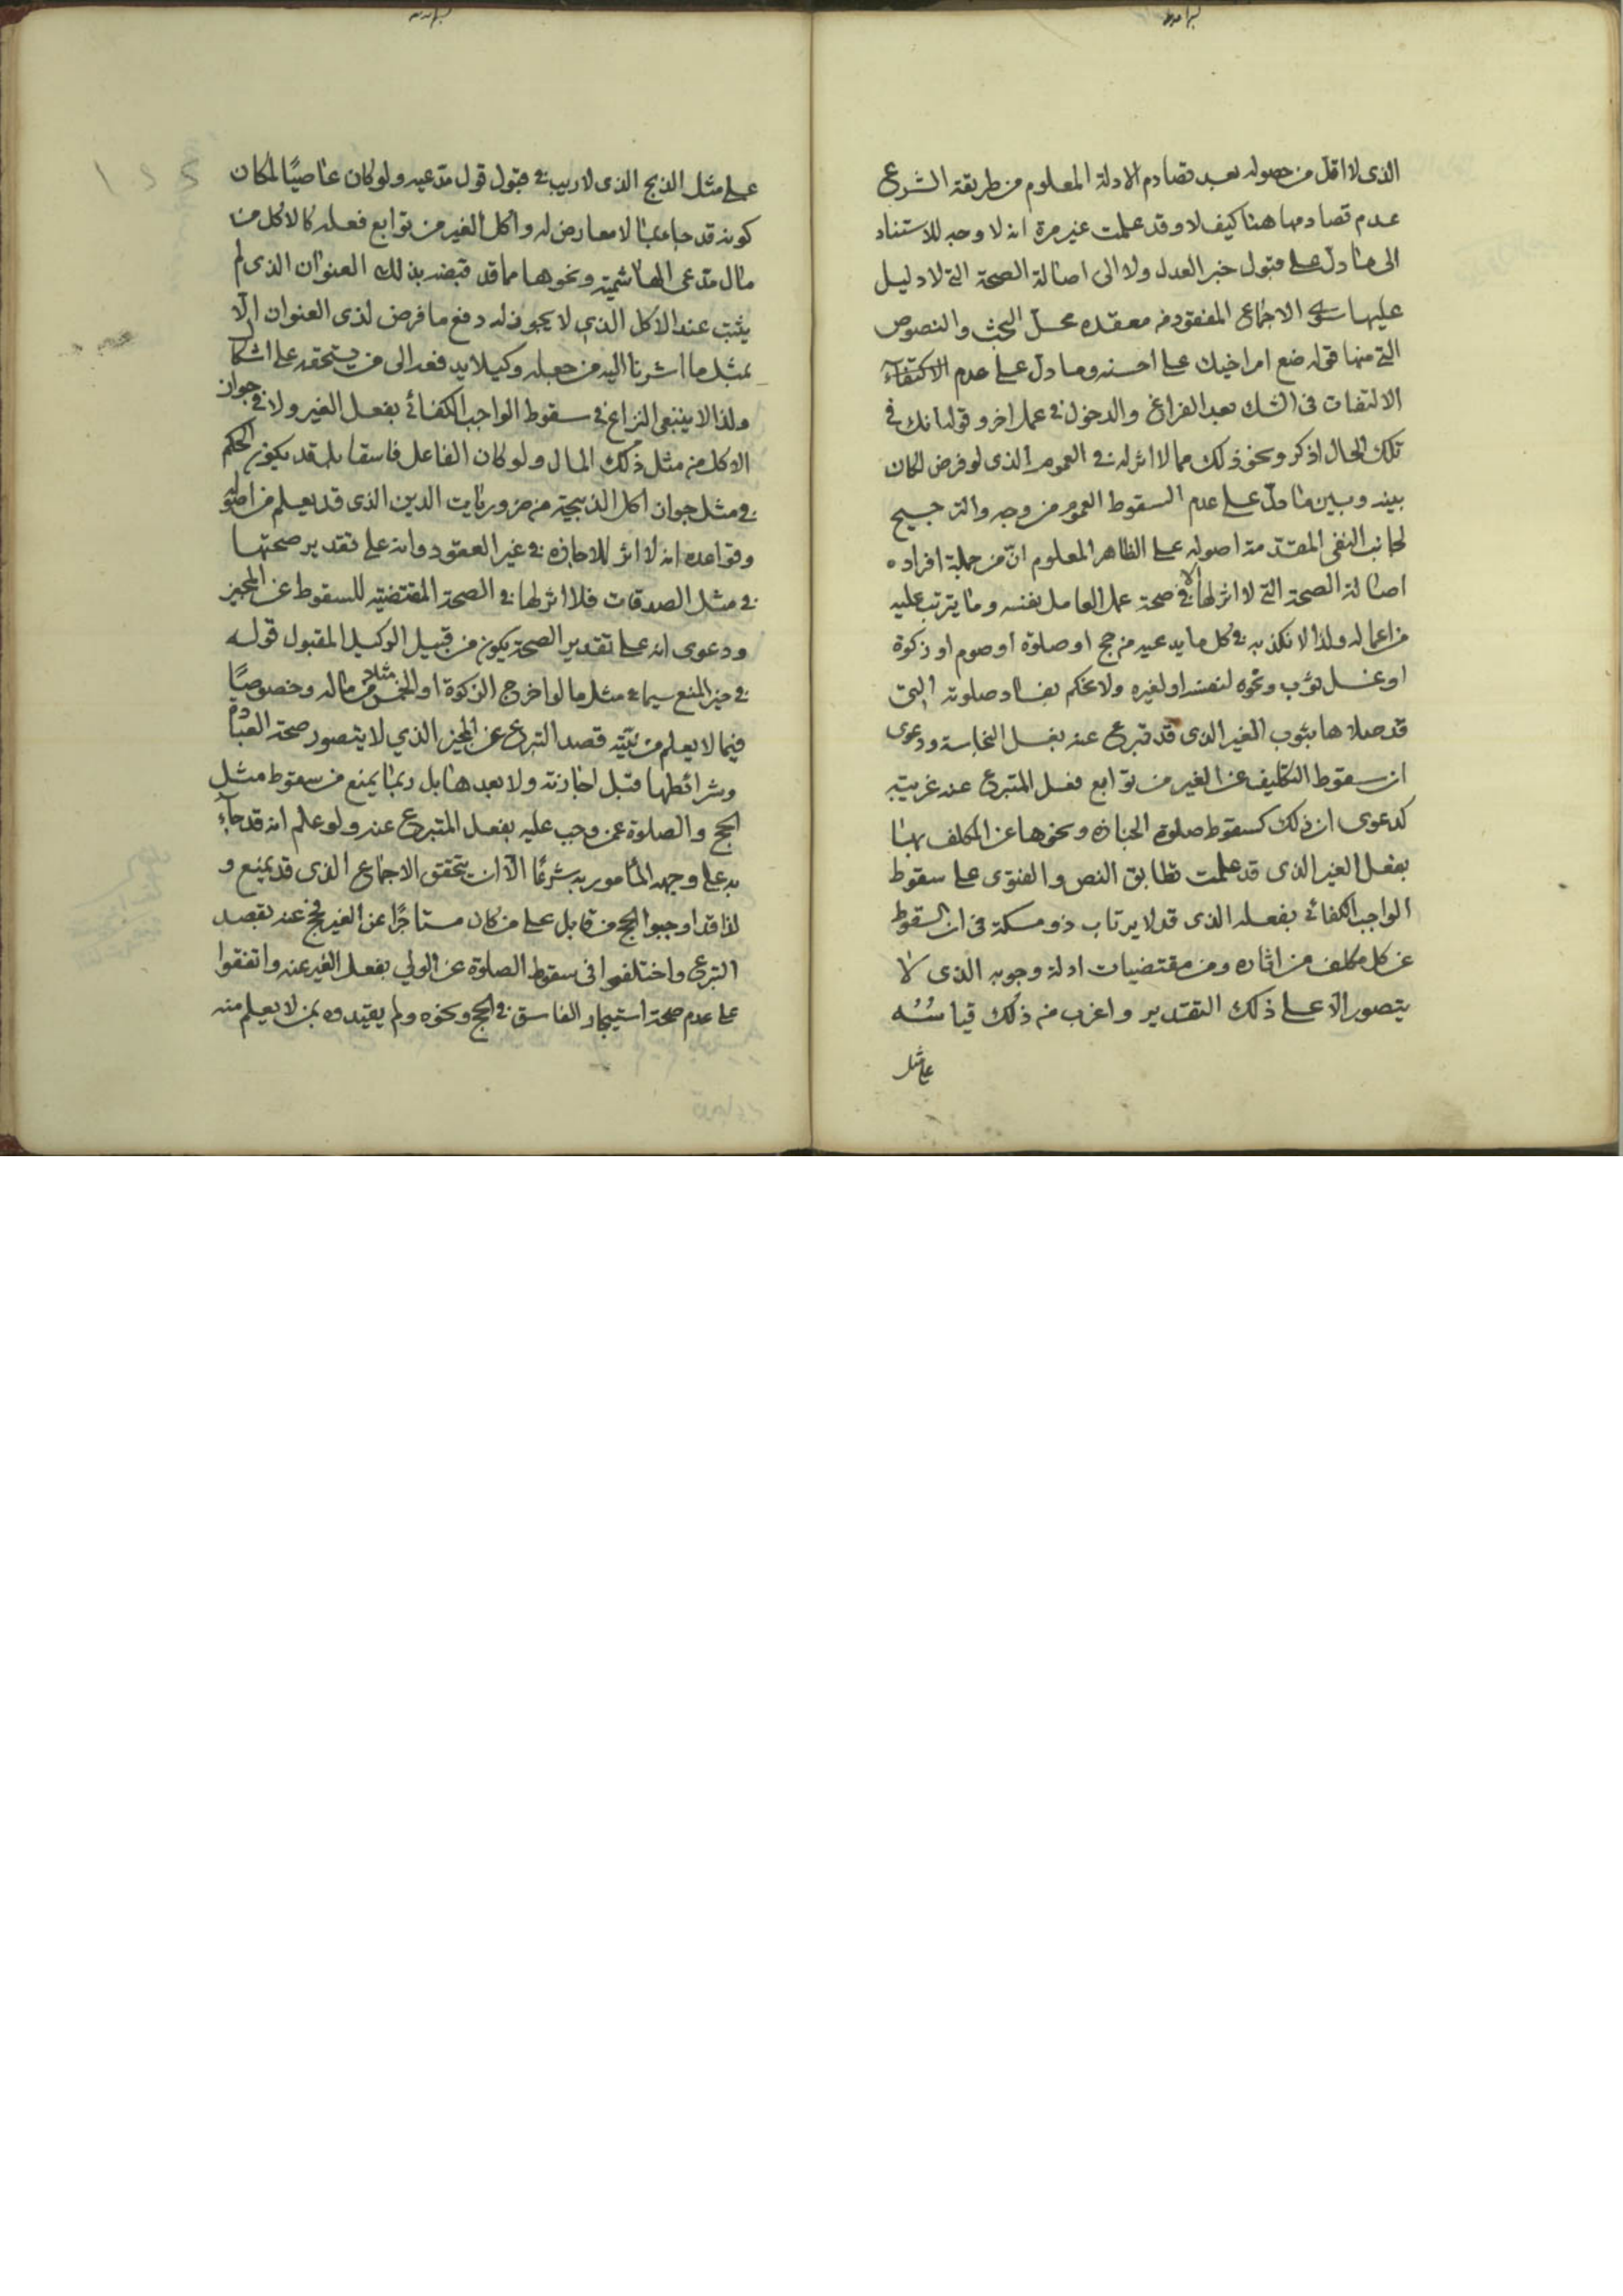 الذى لا اقل من حصوله بعد تصادم الادلة المعلوم من طريقة الشرع
عدم تصادمها هنا كيف لا وقد علمت غير مرة انه لا وجه للاستناد
الى ما دل على قبول خبر العدل ولا الى اصالة الصحة التى لا دليل
عليها سوى الاجماع المفقود فى معقده محل البحث والنصوص
التى منها قوله ضع امر اخيك على احسنه وما دل على عدم الاكتفآء
الالتفات فى الشك بعد الفراغ والدخول فى عمل اخر وقوله انك فى
تلك الحال اذكر ونحو ذلك مما لا اثر له فى العموم الذى لو فرض لكان
بينه وبين ما دل على عدم السقوط العموم من وجه والترجيح
لجانب النفى المقدمة اصوله على الظاهر المعلوم ان من جملة افراده
اصالة الصحة التى لا اثر لها الا فى صحة عمل العامل بنفسه وما يترتب عليه
من اعماله ولذا لا نكذبه فى كل ما يدعيه من حج او صلوة او صوم او زكوة
او غسل ثوب ونحوه لنفسه او لغيره ولا نحكم بفساد صلوته التى
قد صلاها بثوب الغير الذى قد تبرع عنه بغسل النجاسة ودعوى
ان سقوط التكليف عن الغير من توابع فعل المتبرع عنه غريبة
كدعوى ان ذلك كسقوط صلوة الجنازة ونحوها عن المكلف بها
بفعل الغير الذى قد علمت تطابق النص والفتوى على سقوط
الواجب الكفائى بفعله الذى قد لا يرتاب ذو مسكة فى ان السقوط
عن كل مكلف من اثاره ومن مقتضيات ادلة وجوبه الذى لا
يتصور الا على ذلك التقدير واغرب من ذلك قياسُه
على مثل
على مثل الذبح الذى لا ريب فى قبول قول مدعيه ولو كان عاصيًا لمكان
كونه قد جاء بما لا معارض له واكل الغير من توابع فعله كالاكل من
مال مدعى الهاشمية ونحوها مما قد قبضه بذلك العنوان الذى لم
يثبت عند الاكل الذى لا يجوز له دفع ما فرض لذى العنوان الّا
بمثل ما اشرنا اليه من جعله وكيلا يدفعه الى من يستحقه على اشكال
ولذا لا ينبغى النزاع فى سقوط الواجب الكفائى بفعل الغير ولا فى جواز
الاكل من مثل ذلك المال ولو كان الفاعل فاسقا بل قد يكون الحكم
فى مثل جواز اكل الذبيحة من ضروريات الدين الذى قد يعلم من اصوله
وقواعده انه لا اثر للاجازة فى غير العقود وانه على تقدير صحتها
فى مثل الصدقات فلا اثر لها فى الصحة المقتضية للسقوط عن المجيز
ودعوى انه على تقدير الصحة يكون من قبيل الوكيل المقبول قوله
فى حيز المنع سيما فى مثل ما لو اخرج الزكوة او الخمس مثلا من ماله وخصوصًا
فيما لا يعلم من نيّته قصد التبرع عن المجيز الذى لا يتصور صحة العبادة
وشرائطها قبل اجازته ولا بعدها بل ربما يمنع من سقوط مثل
الحج والصلوة عمن وجب عليه بفعل المتبرع عنه ولو علم انه قد جآء
به على وجهه المأمور به شرعًا الّا ان يتحقق الاجماع الذى قد يمنع و
لذا قد اوجبوا الحج من قابل على من كان مستاجرًا عن الغير فحج عنه بقصد
التبرع واختلفوا فى سقوط الصلوة عن الولي بفعل الغير عنه واتفقوا
على عدم صحة استيجار الفاسق فى الحج ونحوه ولم يقيدوه بمن لا يعلم منه